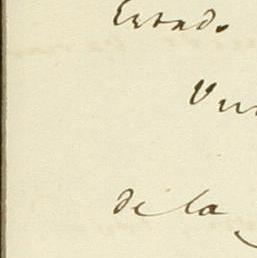 Estado
de la